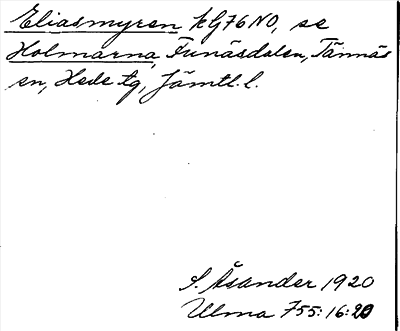 Eliasmyren kG76NO, se
Holmarna, Funäsdalen, Tännäs
sn, Hede tg, Jämtl. l.
S. Åsander 1920
Ulma 755:16:20